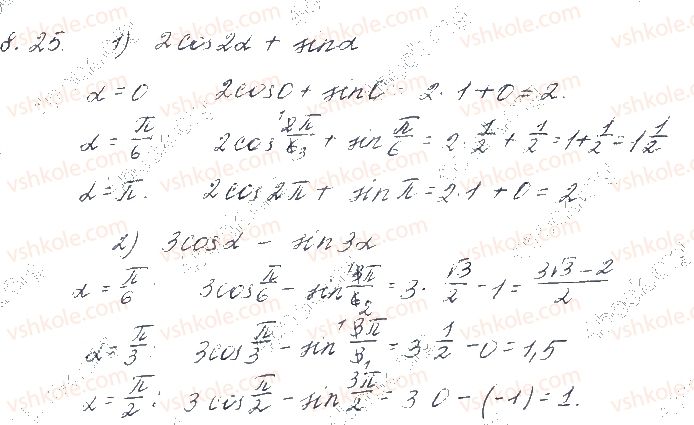 8.25. 1) 2cos2α + sinα
α = 0 2cos0 + sin0 2·1+0=2.
α = π/6 2cos 2π/6 + sin π/6 = 2·1/2 + 1/2 = 1 + 1/2 = 1 1/2
α = π. 2cos2π + sinπ = 2·1+0 = 2
2) 3cosα − sin3α
α = π/6 3cos π/6 − sin 3π/6 = 3· √3/2 − 1 = (3√3−2)/2
α = π/3 3cos π/3 − sin 3π/3 = 3 1/2 − 0 = 1,5
α = π/2 : 3cos π/2 − sin 3π/2 = 3 0 − (−1) = 1.